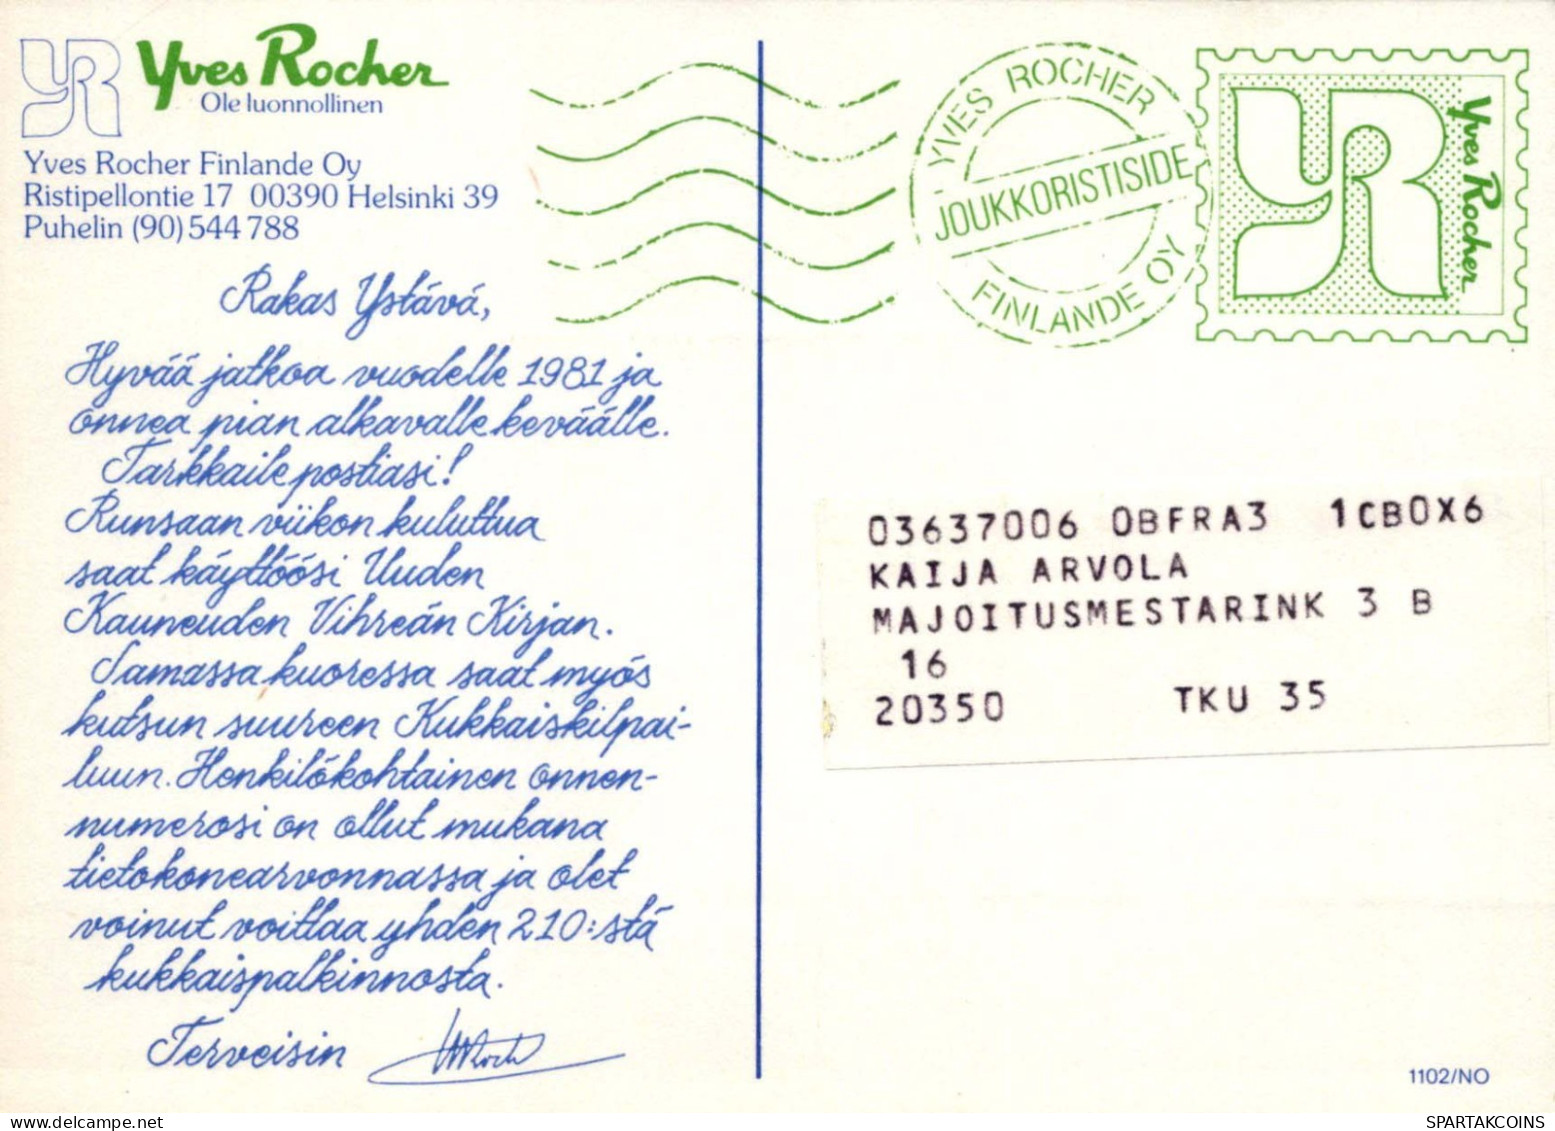 YR Yves Rocher
Ole luonnollinen
Yves Rocher Finlande Oy
Ristipellontie 17 00390 Helsinki 39
Puhelin (90) 544 788
Rakas Ystävä,
Hyvää jatkoa vuodelle 1981 ja
onnea pian alkavalle keväälle.
Tarkkaile postiasi!
Runsaan viikon kuluttua
saat käyttöösi Uuden
Kauneuden Vihreän Kirjan.
Samassa kuoressa saat myös
kutsun suureen Kukkaiskilpai-
luun. Henkilökohtainen onnen-
numerosi on ollut mukana
tietokonearvonnassa ja olet
voinut voittaa yhden 210:stä
kukkaispalkinnosta.
Terveisin
YVES ROCHER
JOUKKORISTISIDE
FINLANDE OY
YR
Yves Rocher
03637006 OBFRA3 1CBOX6
KAIJA ARVOLA
MAJOITUSMESTARINK 3 B
16
20350 TKU 35
1102/NO
SPARTAKCOINS